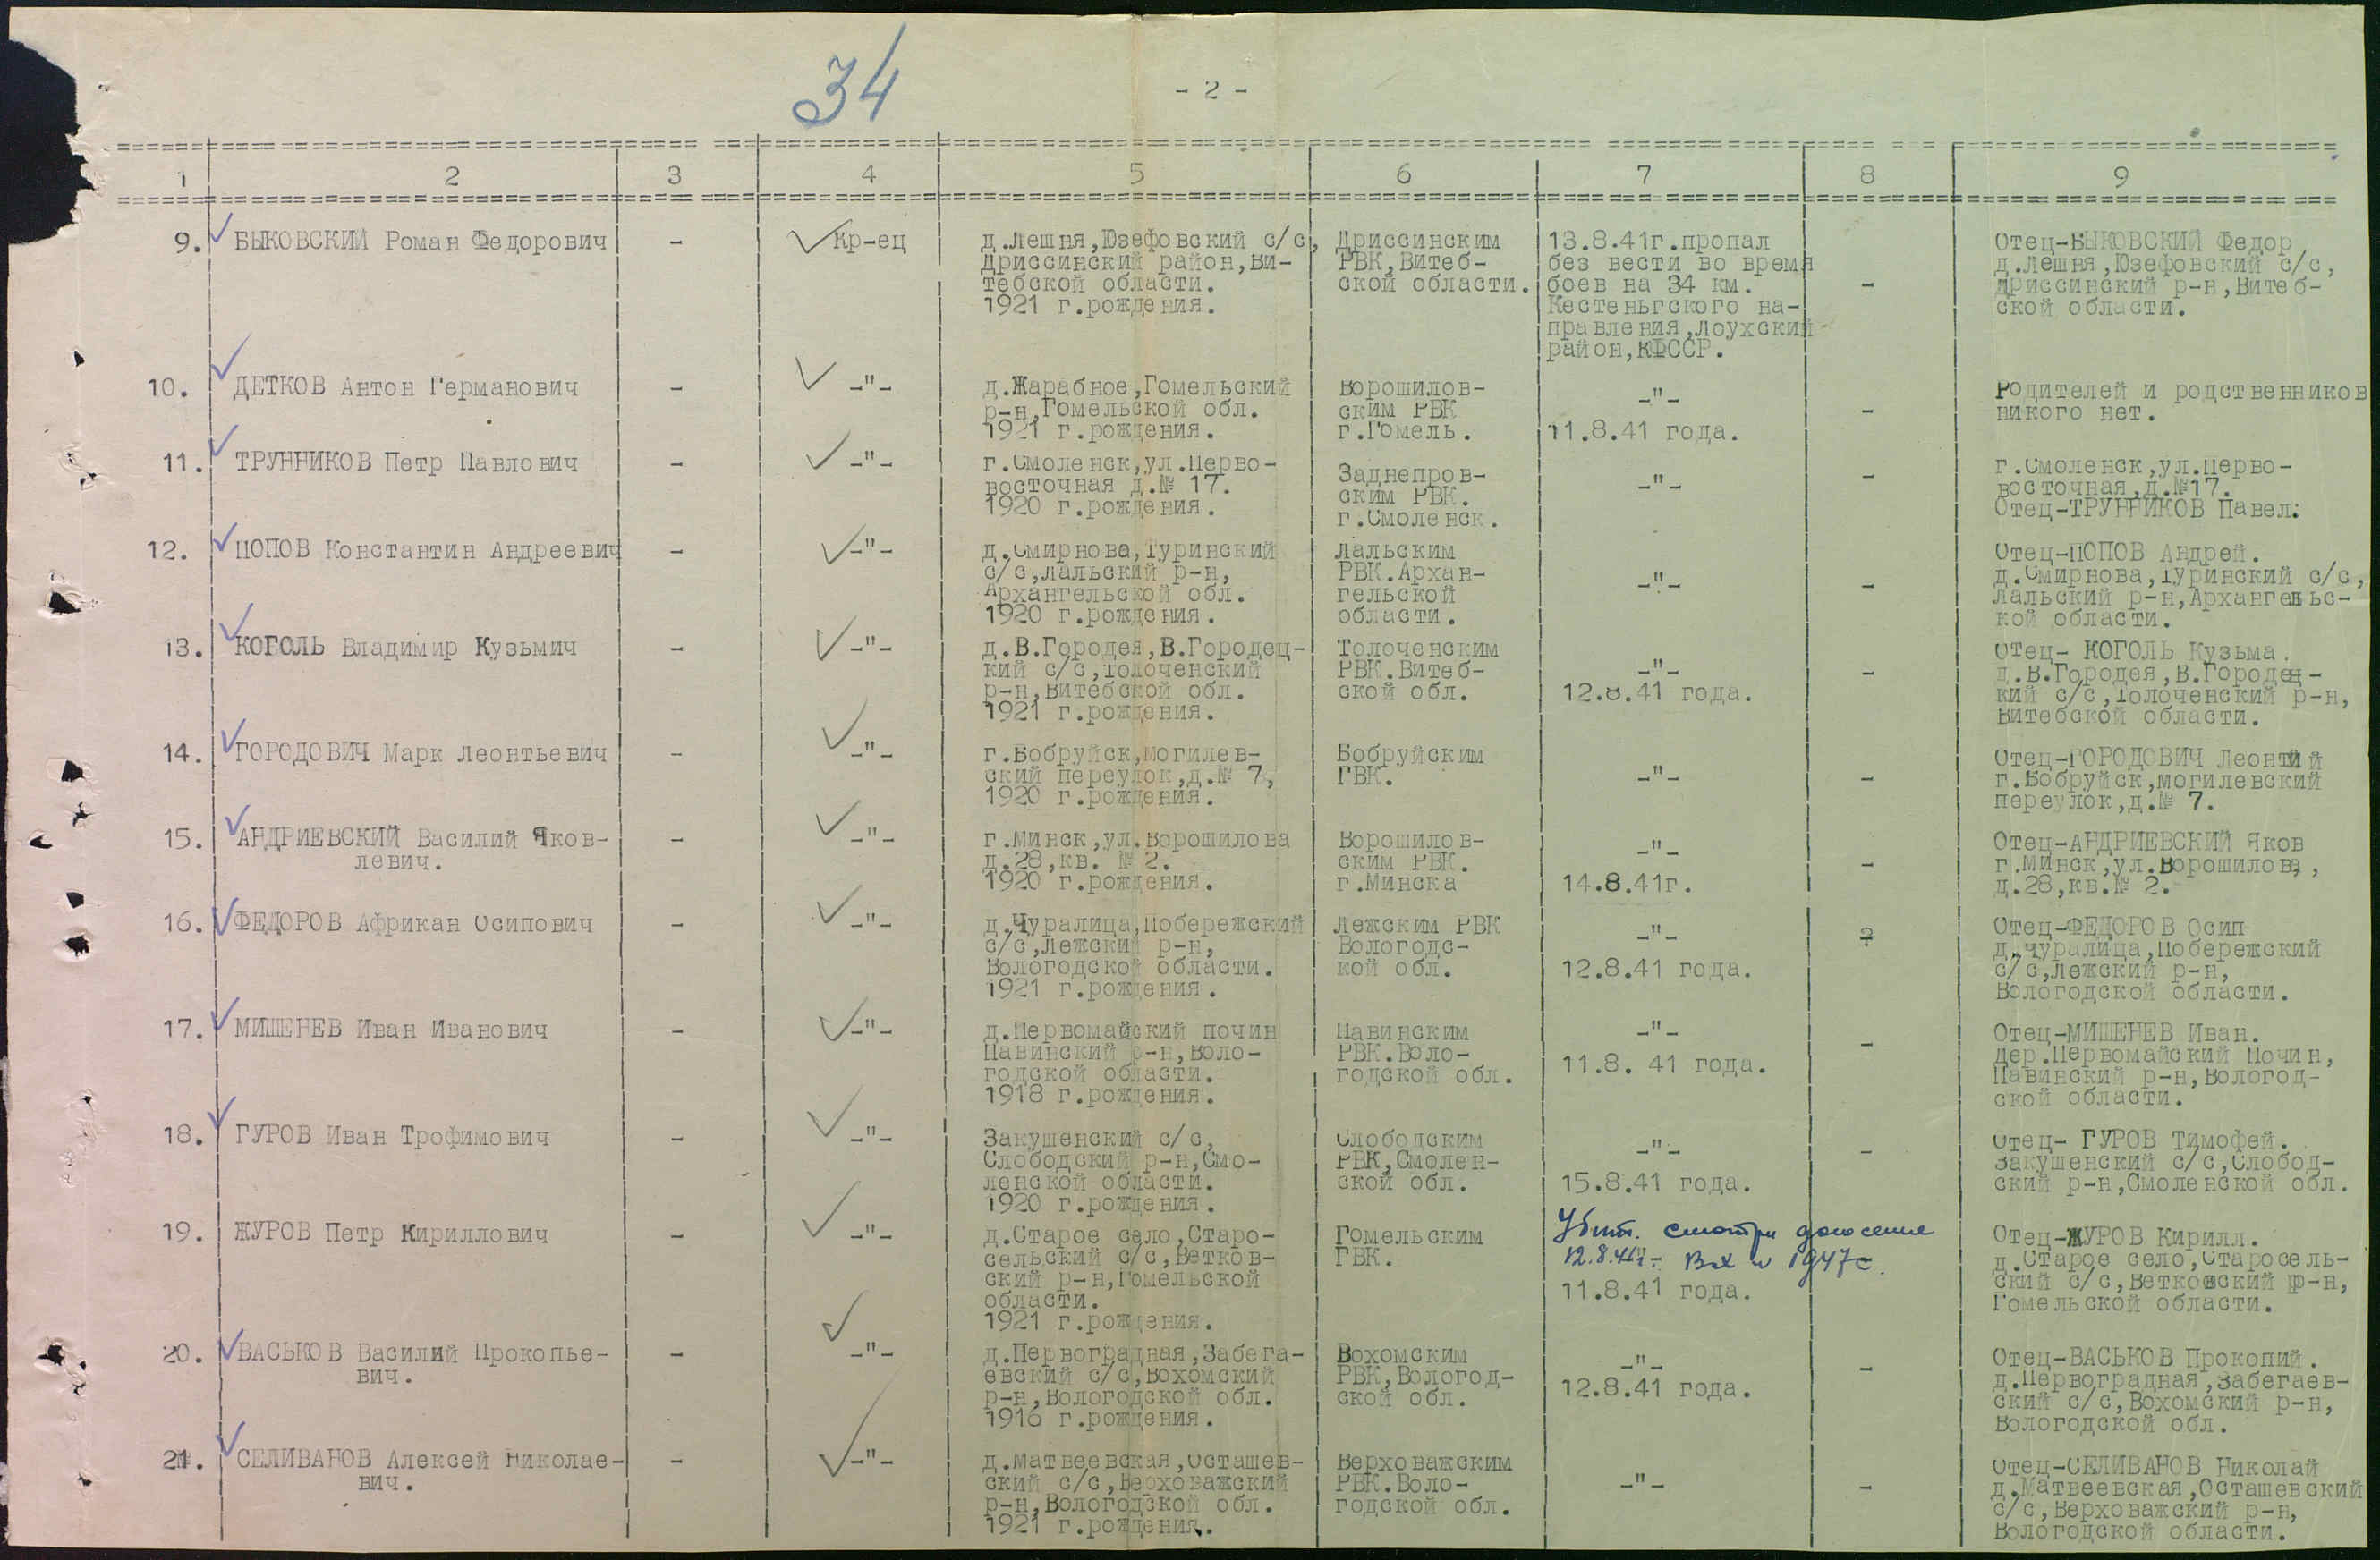 34
- 2 -
1 2 3 4 5 6 7 8 9
9. БЫКОВСКИЙ Роман Федорович - Кр-ец д.Лешня,Юзефовский с/с, Дриссинским 13.8.41г.пропал Отец-БЫКОВСКИЙ Федор
Дриссинский район,Ви- РВК,Витеб- без вести во время д.Лешня,Юзефовский с/с,
тебской области. ской области. боев на 34 км. - Дриссинский р-н,Витеб-
1921 г.рождения. Кестеньгского на- ской области.
правления,Лоухский
район,КФССР.
10. ДЕТКОВ Антон Германович - -"- д.Жарабное,Гомельский Ворошилов- -"- Родителей и родственников
р-н,Гомельской обл. ским РВК - никого нет.
1921 г.рождения. г.Гомель. 11.8.41 года.
11. ТРУННИКОВ Петр Павлович - -"- г.Смоленск,ул.Перво- Заднепров- -"- - г.Смоленск,ул.Перво-
восточная д.№ 17. ским РВК. восточная,д.№17.
1920 г.рождения. г.Смоленск. Отец-ТРУННИКОВ Павел.
12. ПОПОВ Константин Андреевич - -"- д.Смирнова,Туринский Лальским Отец-ПОПОВ Андрей.
с/с,Лальский р-н, РВК.Архан- -"- - д.Смирнова,Туринский с/с,
Архангельской обл. гельской Лальский р-н,Архангельс-
1920 г.рождения. области. кой области.
13. КОГОЛЬ Владимир Кузьмич - -"- д.В.Городея,В.Городец- Толоченским Отец- КОГОЛЬ Кузьма.
кий с/с,Толоченский РВК.Витеб- -"- - д.В.Городея,В.Городец-
р-н,Витебской обл. ской обл. 12.8.41 года. кий с/с,Толоченский р-н,
1921 г.рождения. Витебской области.
14. ГОРОДОВИЧ Марк Леонтьевич - -"- г.Бобруйск,Могилев- Бобруйским Отец-ГОРОДОВИЧ Леонтий
ский переулок,д.№ 7, ГВК. -"- - г.Бобруйск,Могилевский
1920 г.рождения. переулок,д.№ 7.
15. АНДРИЕВСКИЙ Василий Яков- - -"- г.Минск,ул.Ворошилова Ворошилов- -"- Отец-АНДРИЕВСКИЙ Яков
левич. д.28,кв. № 2. ским РВК. - г.Минск,ул.Ворошилова,
1920 г.рождения. г.Минска 14.8.41г. д.28,кв.№ 2.
16. ФЕДОРОВ Африкан Осипович - -"- д.Чуралица,Побережский Лежским РВК -"- Отец-ФЕДОРОВ Осип
с/с,Лежский р-н, Вологодс- д.Чуралица,Побережский
Вологодской области. кой обл. 12.8.41 года. с/с,Лежский р-н,
1921 г.рождения. Вологодской области.
17. МИШЕНЕВ Иван Иванович - -"- д.Первомайский почин Павинским -"- Отец-МИШЕНЕВ Иван.
Павинский р-н,Воло- РВК.Воло- 11.8. 41 года. - Дер.Первомайский Почин,
годской области. годской обл. Павинский р-н,Вологод-
1918 г.рождения. ской области.
18. ГУРОВ Иван Трофимович - -"- Закушенский с/с, Слободским -"- - Отец- ГУРОВ Тимофей.
Слободский р-н,Смо- РВК,Смолен- Закушенский с/с,Слобод-
ленской области. ской обл. 15.8.41 года. ский р-н,Смоленской обл.
1920 г.рождения.
19. ЖУРОВ Петр Кириллович - -"- д.Старое село,Старо- Гомельским Убит. смотри донесение Отец-ЖУРОВ Кирилл.
сельский с/с,Ветков- ГВК. 12.8.41г. Вх 1947г. д.Старое село,Старосель-
ский р-н,Гомельской 11.8.41 года. ский с/с,Ветковский р-н,
области. Гомельской области.
1921 г.рождения.
20. ВАСЬКОВ Василий Прокопье- - -"- д.Первоградная,Забега- Вохомским -"- - Отец-ВАСЬКОВ Прокопий.
вич. евский с/с,Вохомский РВК,Вологод- 12.8.41 года. д.Первоградная,Забегаев-
р-н,Вологодской обл. ской обл. ский с/с,Вохомский р-н,
1916 г.рождения. Вологодской обл.
21. СЕЛИВАНОВ Алексей Николае- - -"- д.Матвеевская,Осташев- Верховажским Отец-СЕЛИВАНОВ Николай
вич. ский с/с,Верховажский РВК.Воло- -"- - д.Матвеевская,Осташевский
р-н,Вологодской обл. годской обл. с/с,Верховажский р-н,
1921 г.рождения. Вологодской области.